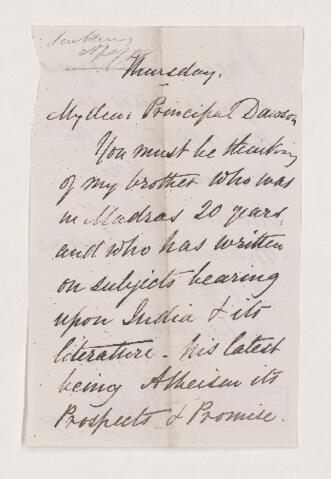 Thursday.
My dear Principal Dawson
You must be thinking
of my brother who was
in Madras 20 years,
and who has written
on subjects bearing
upon India & its
literature - his latest
being Atheism its
Prospects & Promise.